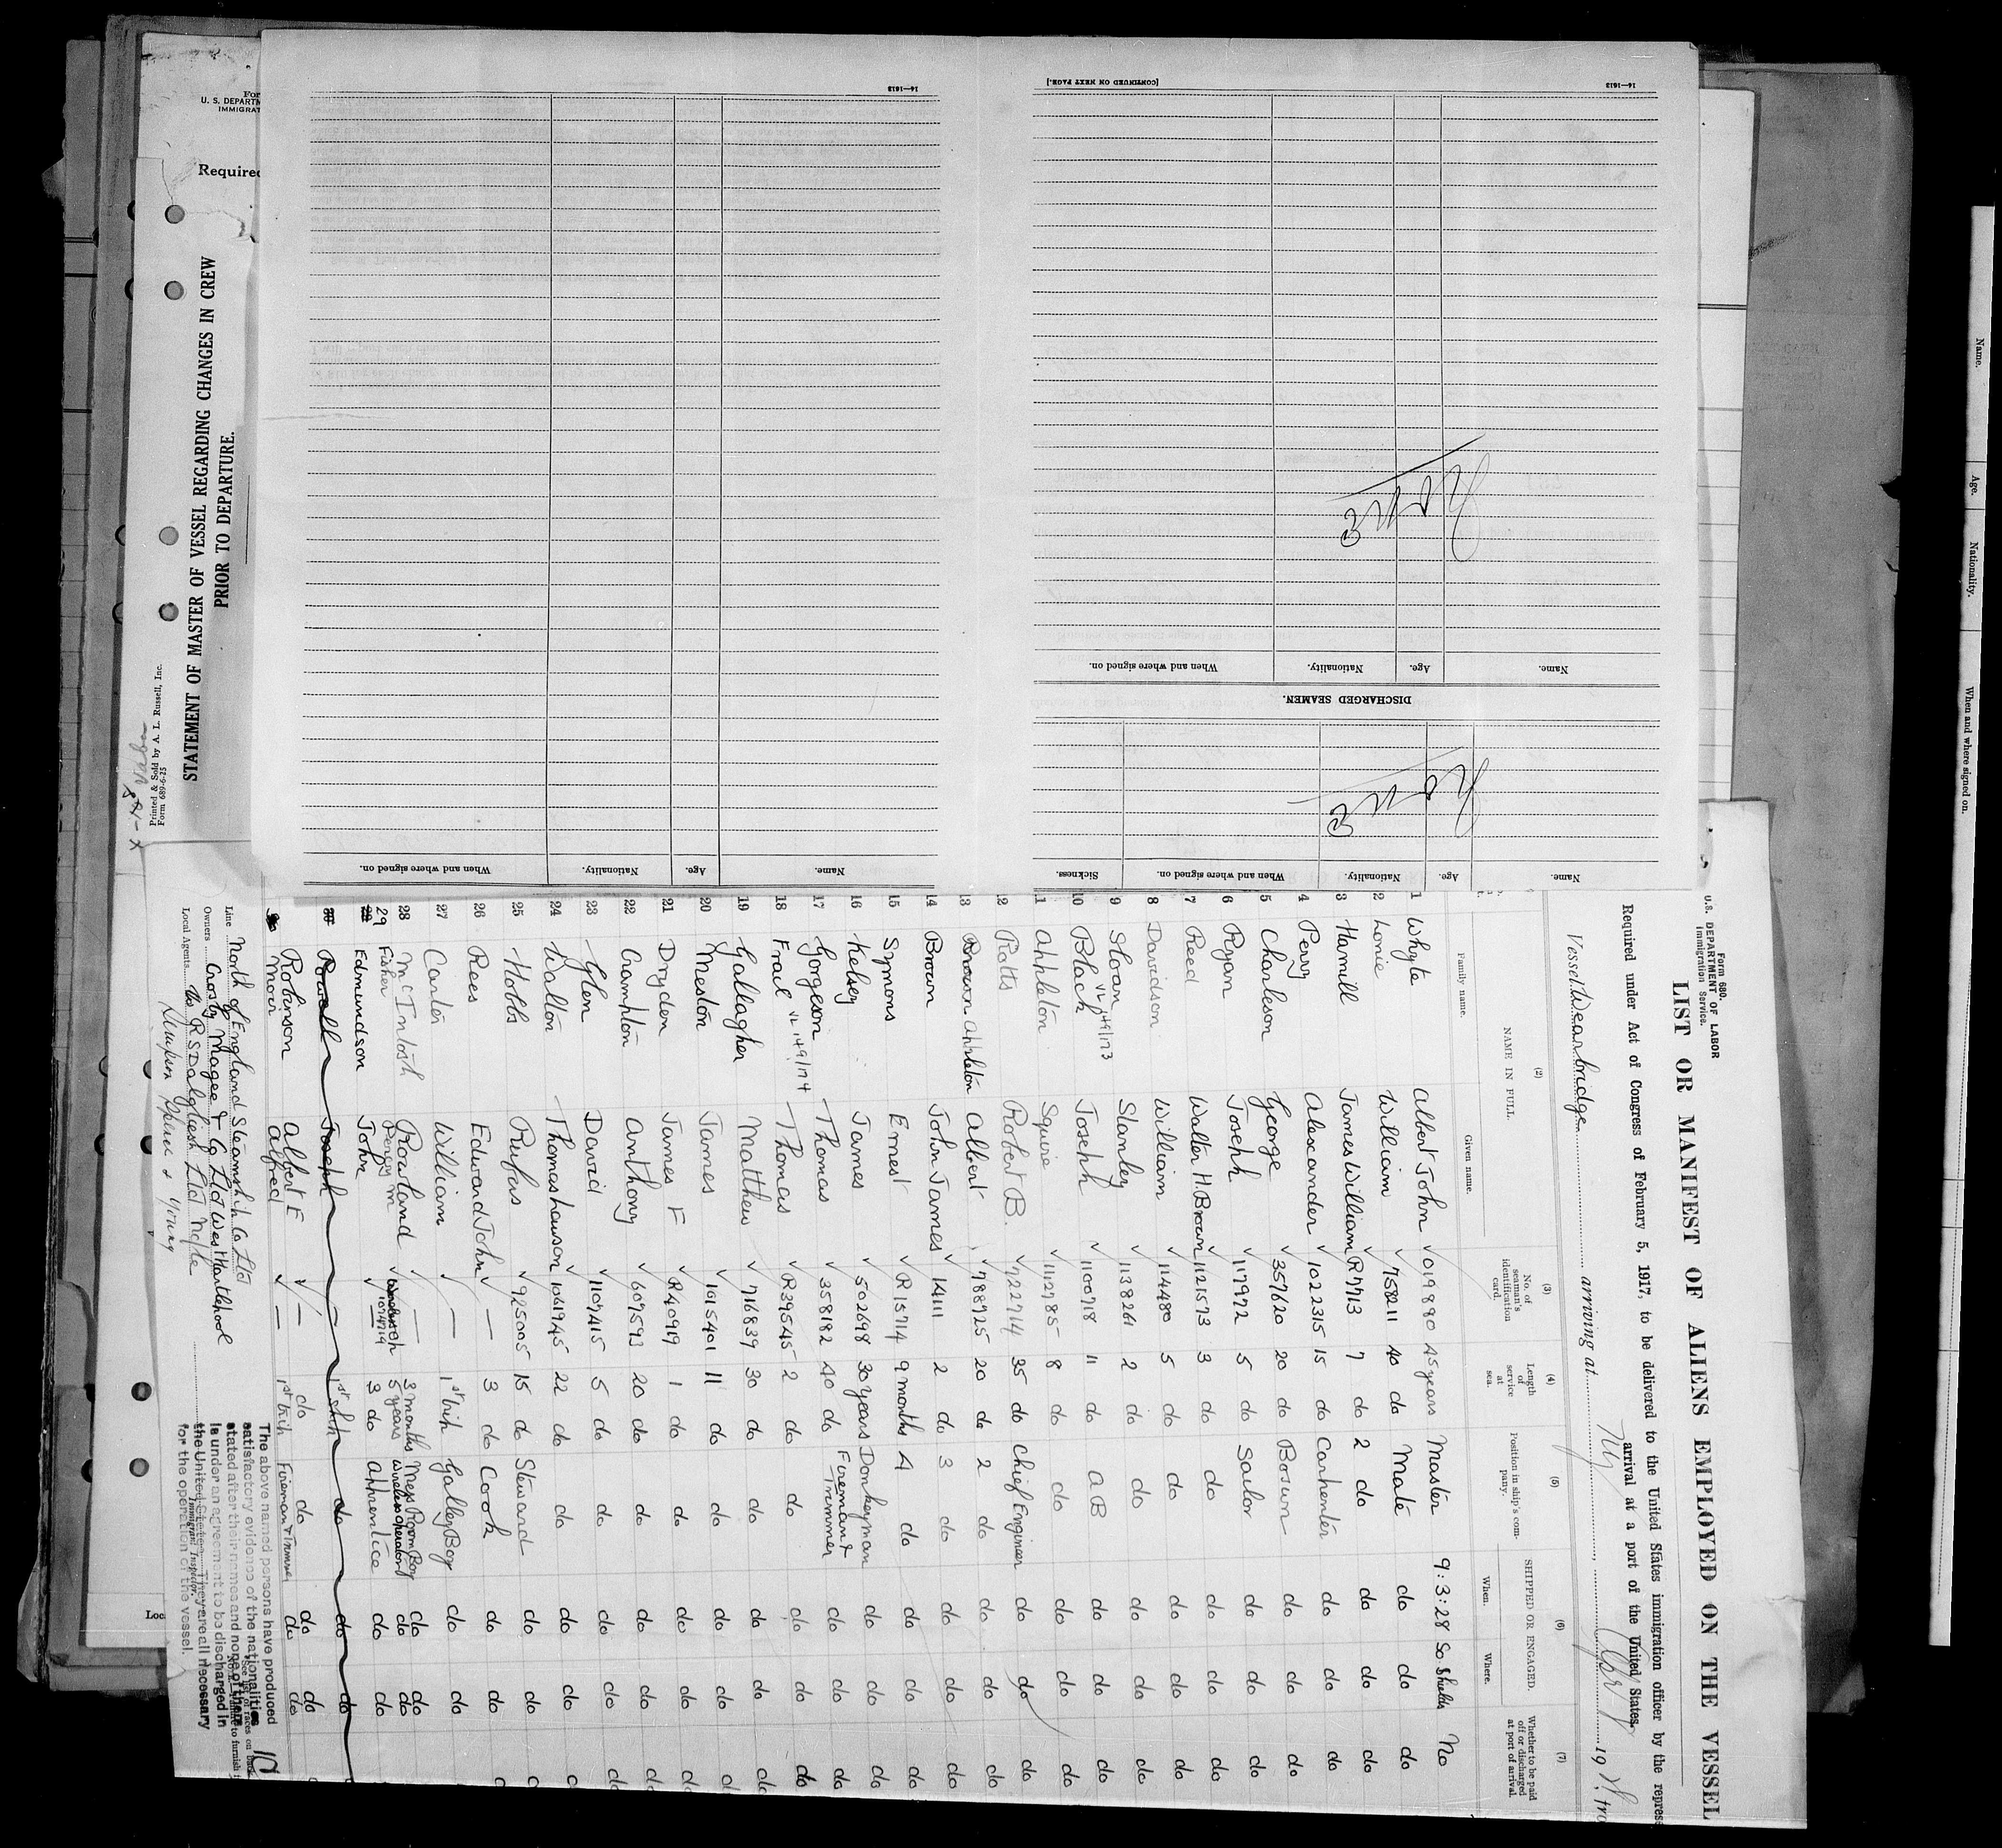 Form
U. S. DEPARTM
IMMIGRAT
Required
STATEMENT OF MASTER OF VESSEL REGARDING CHANGES IN CREW
PRIOR TO DEPARTURE.
Printed & Sold by A. L. Russell, Inc.
Form 689-6-25
[CONTINUED ON NEXT PAGE.]
14—1613
14—1613
None
When and where signed on.
Nationality.
Age.
Name.
DISCHARGED SEAMEN.
None
Name.
Age.
Nationality.
When and where signed on.
Sickness.
Name.
Age.
Nationality.
When and where signed on.
Name.
Age.
Nationality.
When and where signed on.
Form 680.
U.S. DEPARTMENT OF LABOR
Immigration Service.
LIST OR MANIFEST OF ALIENS EMPLOYED ON THE VESSEL
Required under Act of Congress of February 5, 1917, to be delivered to the United States immigration officer by the repres
arrival at a port of the United States.
Vessel Wearbridge arriving at NY 19
(2) (3) (4) (5) (6) (7)
NAME IN FULL
Family name. Given name.
No. of seaman's identification card.
Length of service at sea.
Position in ship's company.
SHIPPED OR ENGAGED.
When. Where.
Whether to be paid off or discharged at port of arrival.
1 Whyte Albert John 019890 45 years Master 9:3:28 So Shields No
2 Lonie William 758211 40 do Mate do do do
3 Hamill James William R7713 7 do 2 do do do do
4 Perry Alexander 1022315 15 do Carpenter do do do
5 Charleson George 357620 20 do Bosun do do do
6 Ryan Joseph 117972 5 do Sailor do do do
7 Reed Walter H Brown 1121573 3 do do do do do
8 Davidson William 114480 5 do do do do do
9 Sloan Stanley 1138261 2 do do do do do
VL 149/173
10 Black Joseph 1100718 11 do AB do do do
11 Appleton Squire 1112785 8 do do do do do
12 Potts Robert B. 722714 35 do Chief Engineer do do do
13 Brown Appleton Albert 788725 20 do 2 do do do do
14 Brown John James 141111 2 do 3 do do do do
15 Symons Ernest R15714 9 months 4 do do do do
16 Kelsey James 502698 30 years Donkeyman do do do
17 Gorgeson Thomas 358182 40 do Fireman & Trimmer do do do
18 Frail VL 149/174 Thomas R39545 2 do do do do do
19 Gallagher Matthew 716839 30 do do do do do
20 Meston James 1015401 11 do do do do do
21 Dryden James F R40919 1 do do do do do
22 Crampton Anthony 607593 20 do do do do do
23 Glen David 1107415 5 do do do do do
24 Walton Thomas Lawson 1061745 22 do do do do do
25 Hobbs Rufus 925005 15 do Steward do do
26 Rees Edward John — 3 do Cook do do
27 Carter William — 1st trip Galley Boy do do
28 McIntosh Rowland — 3 months Mess Room Boy do do
29 Fisher Percy M 5 years Wireless operator do do
Edmundson John 1074719 3 do Apprentice do do
Powell Joseph — 1st trip do do do
Robinson Albert E — do do do do
Moir Alfred — 1st trip Fireman & Trimmer do do
Line North of England Steamship Co Ltd
Owners Crosby Magee & Co Ltd West Hartlepool
Local Agents R S Dalgliesh Ltd
Simpson Spence & Young
The above named persons have produced
satisfactory evidence of the nationalities
stated after their names and none of them
is under an agreement to be discharged in
the United States. They are all necessary
for the operation of the vessel.
Immigrant Inspector.